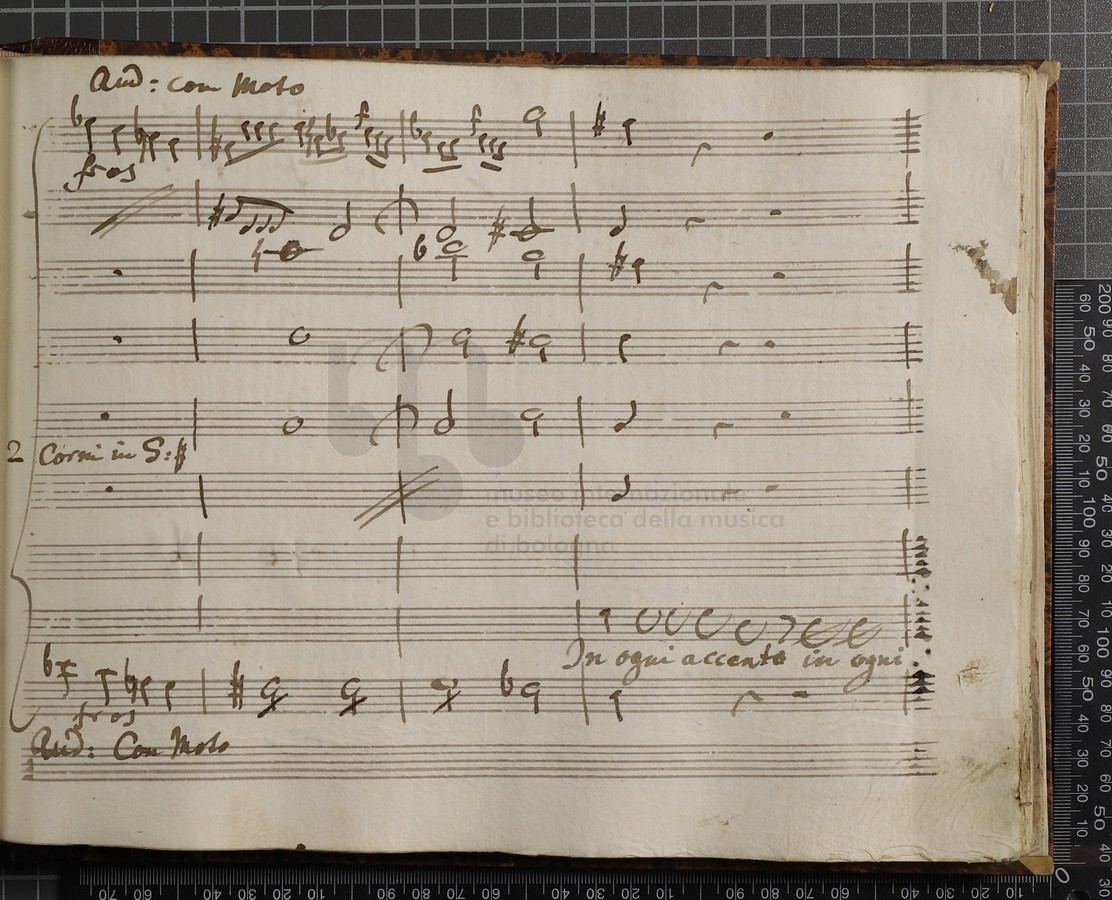 And: con Moto
f
f
fros
2 Corni in G:#
museo internazionale
e biblioteca della musica
di bologna
In ogni accento in ogni
fros
And: Con Moto